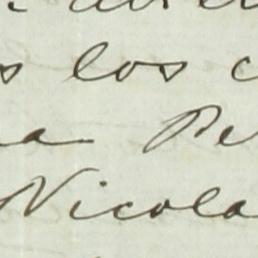 s los c
a Pe
Nicola